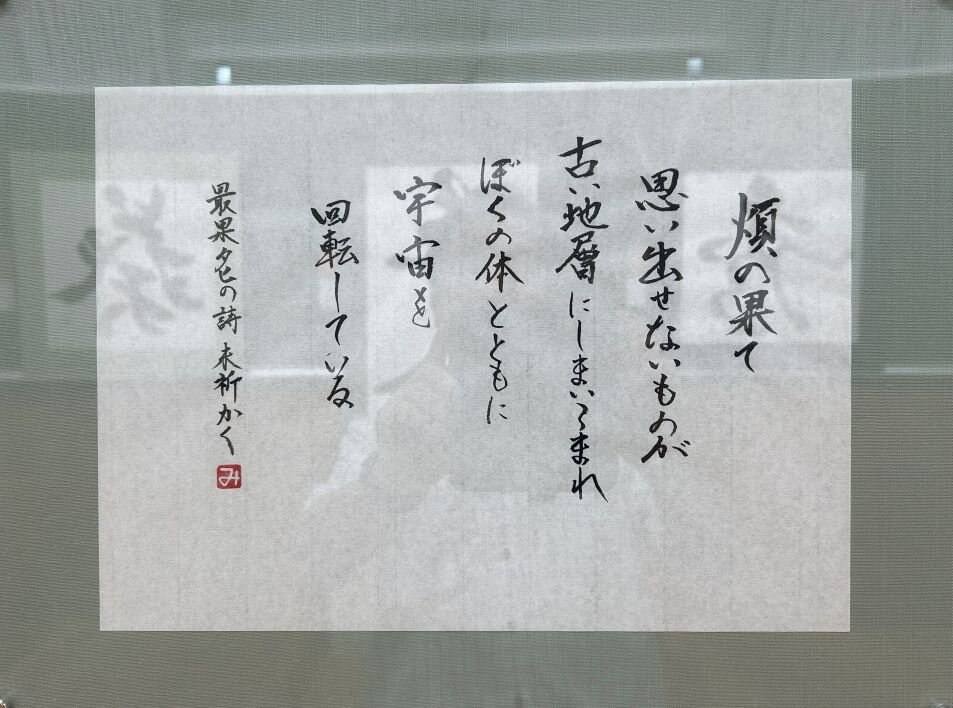 煩の果て
思い出せないものが
古い地層にしまいこまれ
ぼくの体とともに
宇宙を
回転している
最果タヒの詩 未祈かく
み